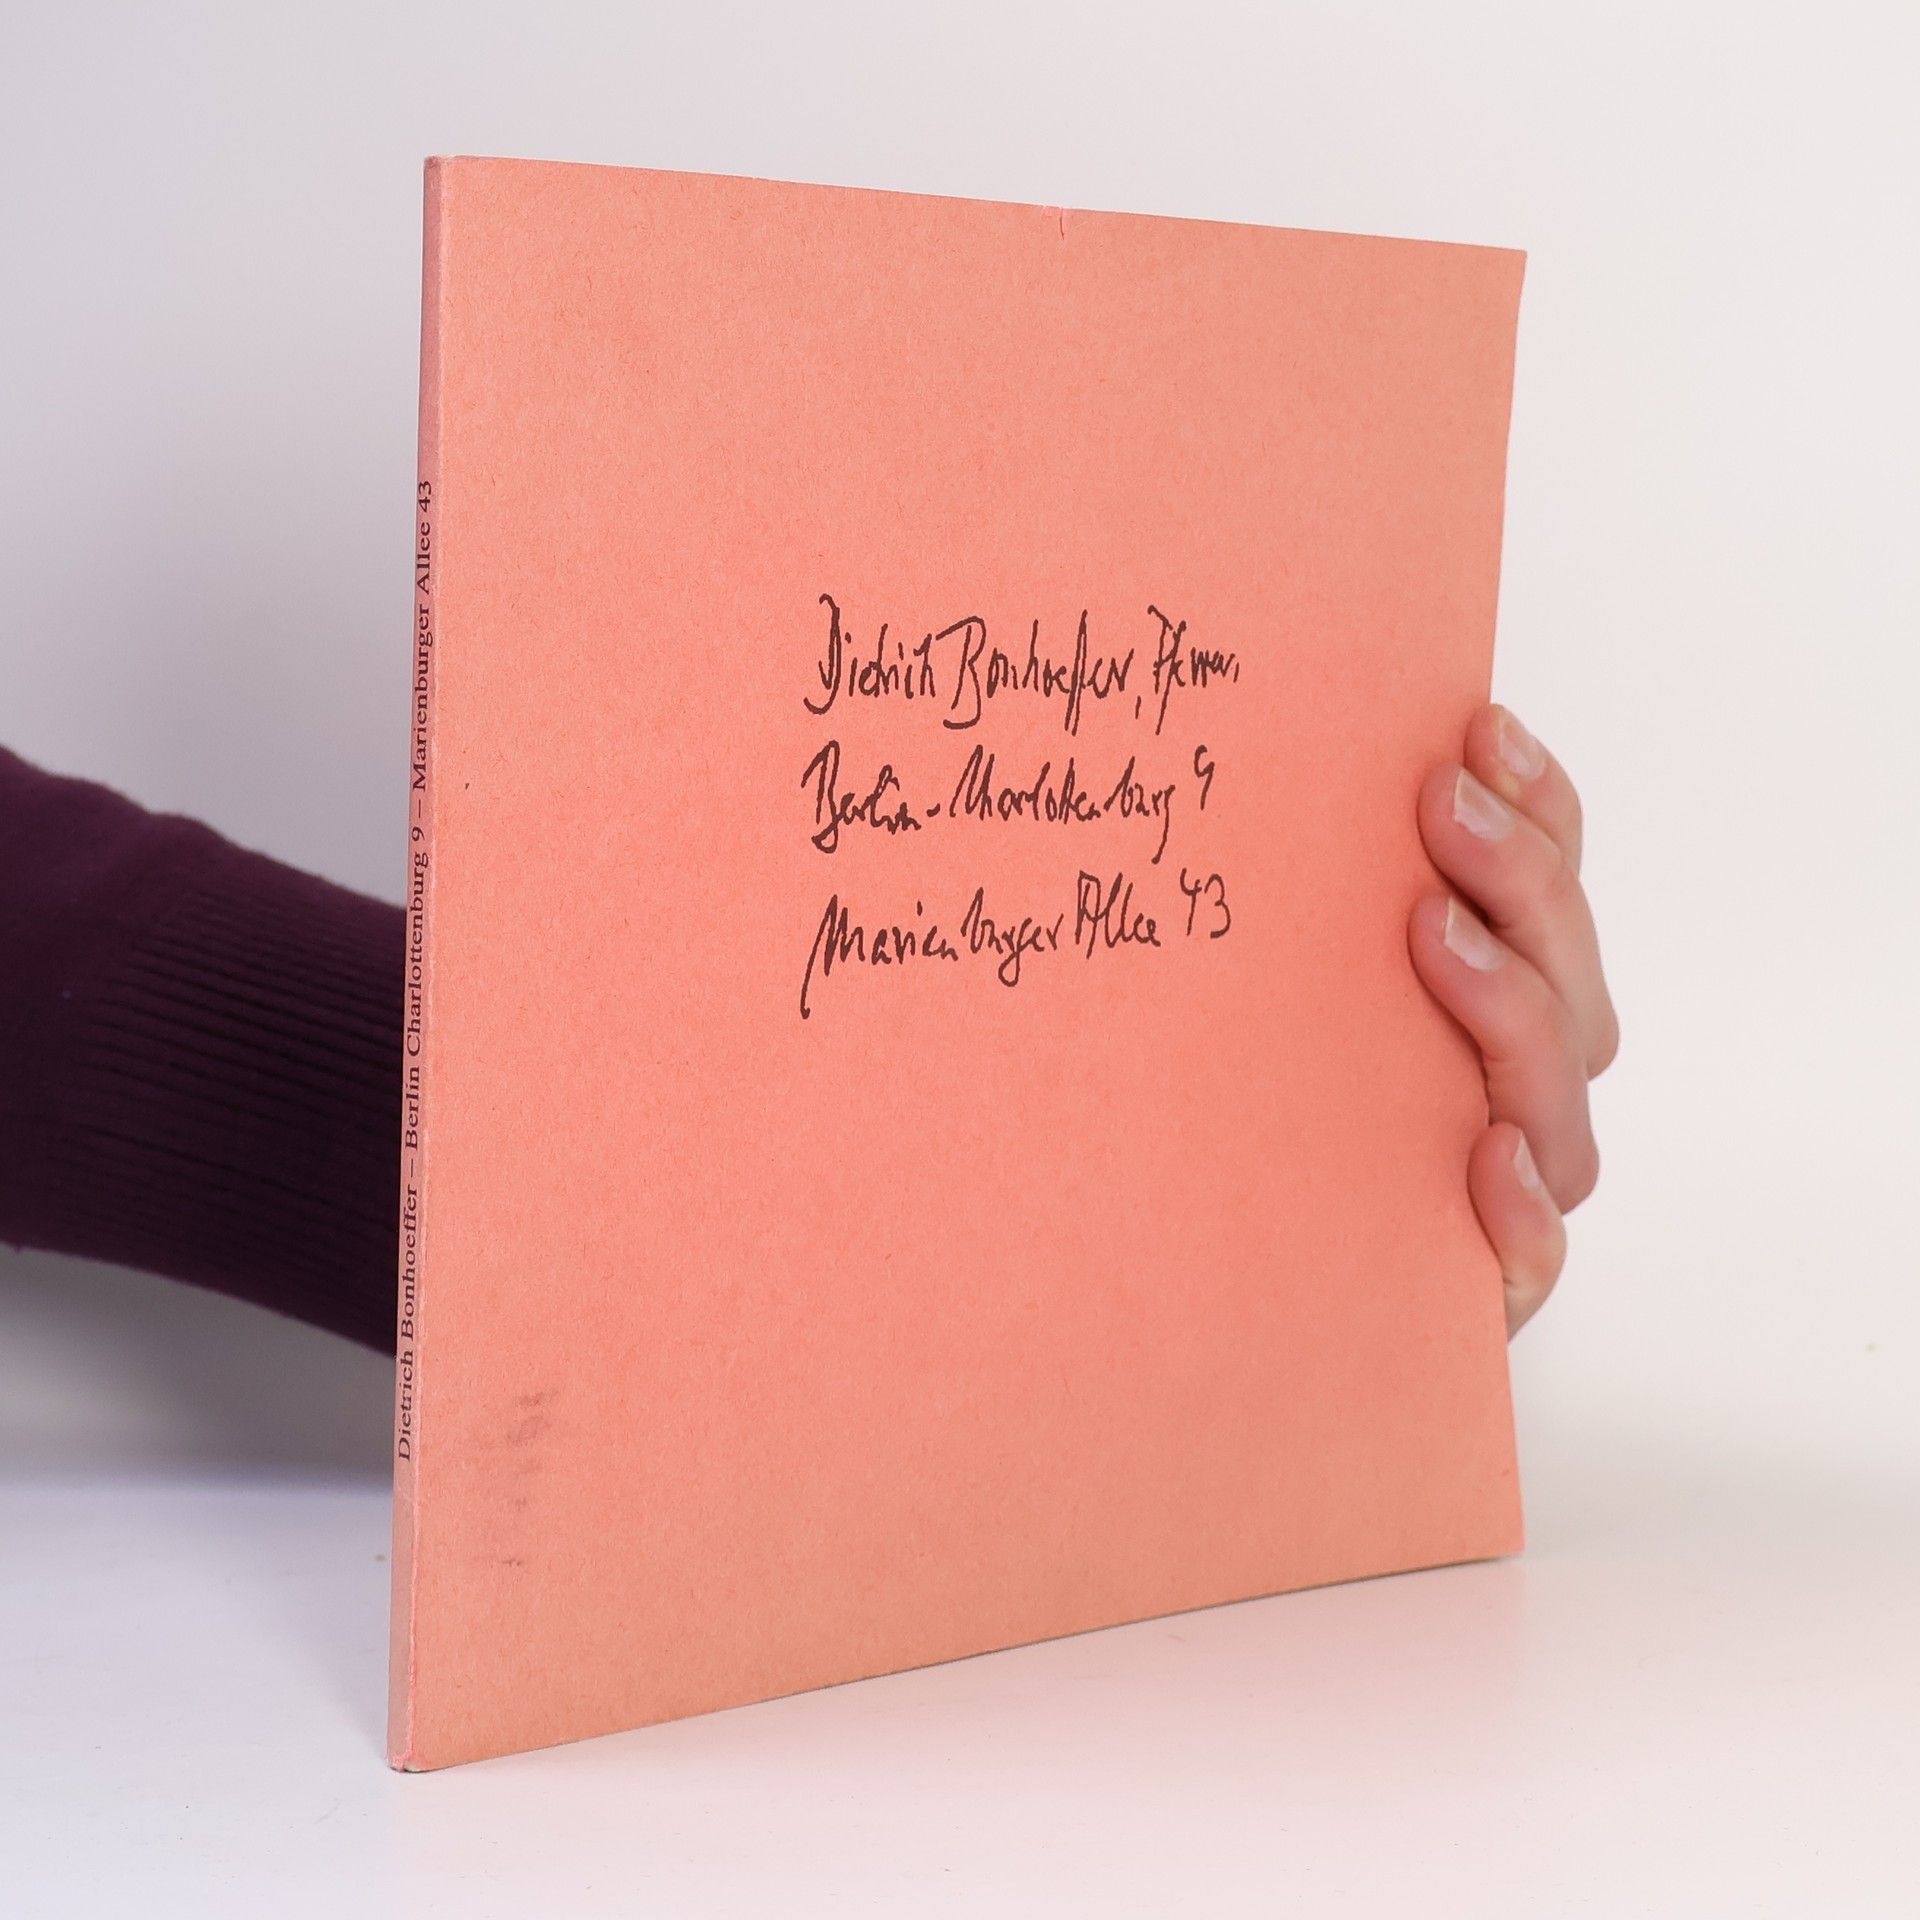 Dietrich Bonhoeffer – Berlin Charlottenburg 9 – Marienburger Allee 43
Dietrich Bonhoeffer, Pfarrer,
Berlin-Charlottenburg 9
Marienburger Allee 43